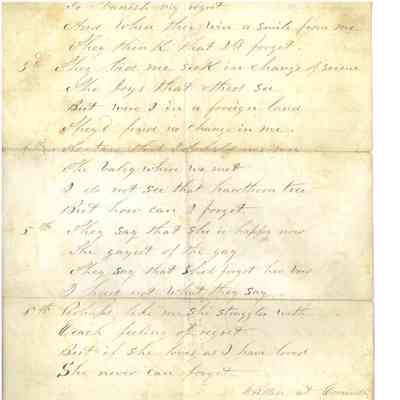 To banish my regret
And when they win a smile from me
They think that I forget.
3rd They bid me seek in change of scene
The joys that others see
But were I in a foreign land
They'd find no change in me.
4th 'Tis true that I behold no more
The valey where we met
I do not see that hawthorn tree
But how can I forget.
5th They say that she is happy now
The gayest of the gay
They say that she'd forget her
I heed not what they say
6th Perhaps like me she struggles with
Each feeling of regret
But if she loves as I have loved
She never can forget
Written at